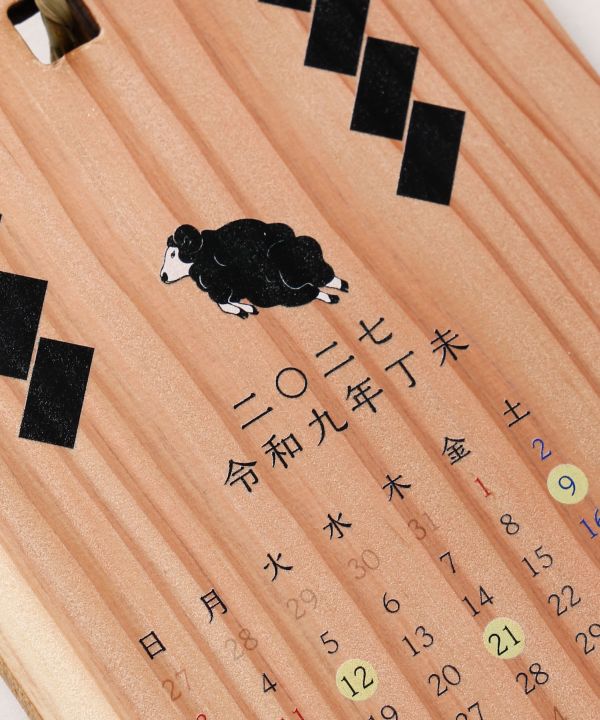 二〇二七
令和九年丁未
日 月 火 水 木 金 土
27 28 29 30 31 1 2
4 5 6 7 8 9
11 12 13 14 15 16
19 20 21 22
27 28 29
4